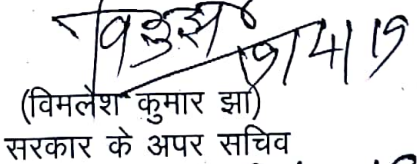 9/4/19
(विमलेश कुमार झा)
सरकार के अपर सचिव